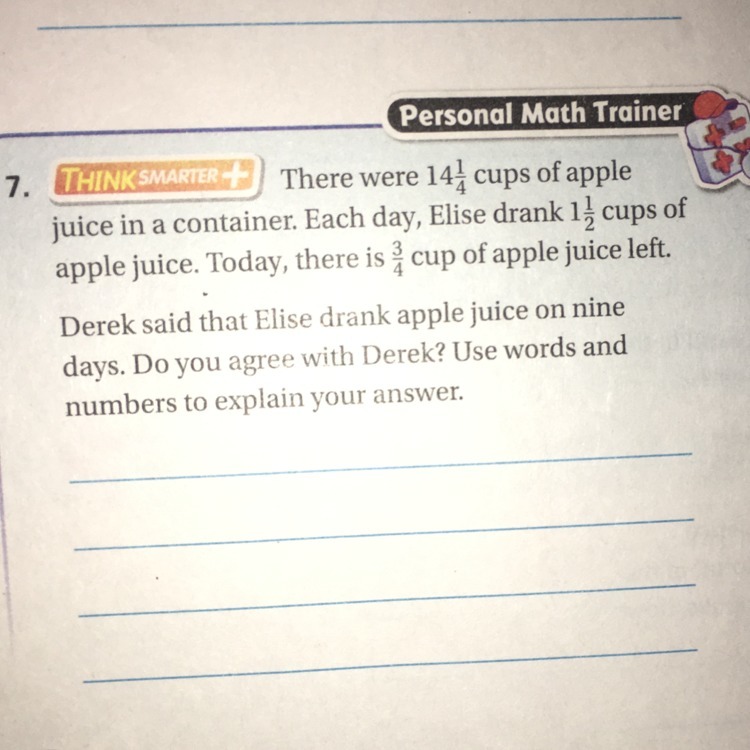 Personal Math Trainer
7. THINK SMARTER + There were 14 1/4 cups of apple
juice in a container. Each day, Elise drank 1 1/2 cups of
apple juice. Today, there is 3/4 cup of apple juice left.
Derek said that Elise drank apple juice on nine
days. Do you agree with Derek? Use words and
numbers to explain your answer.